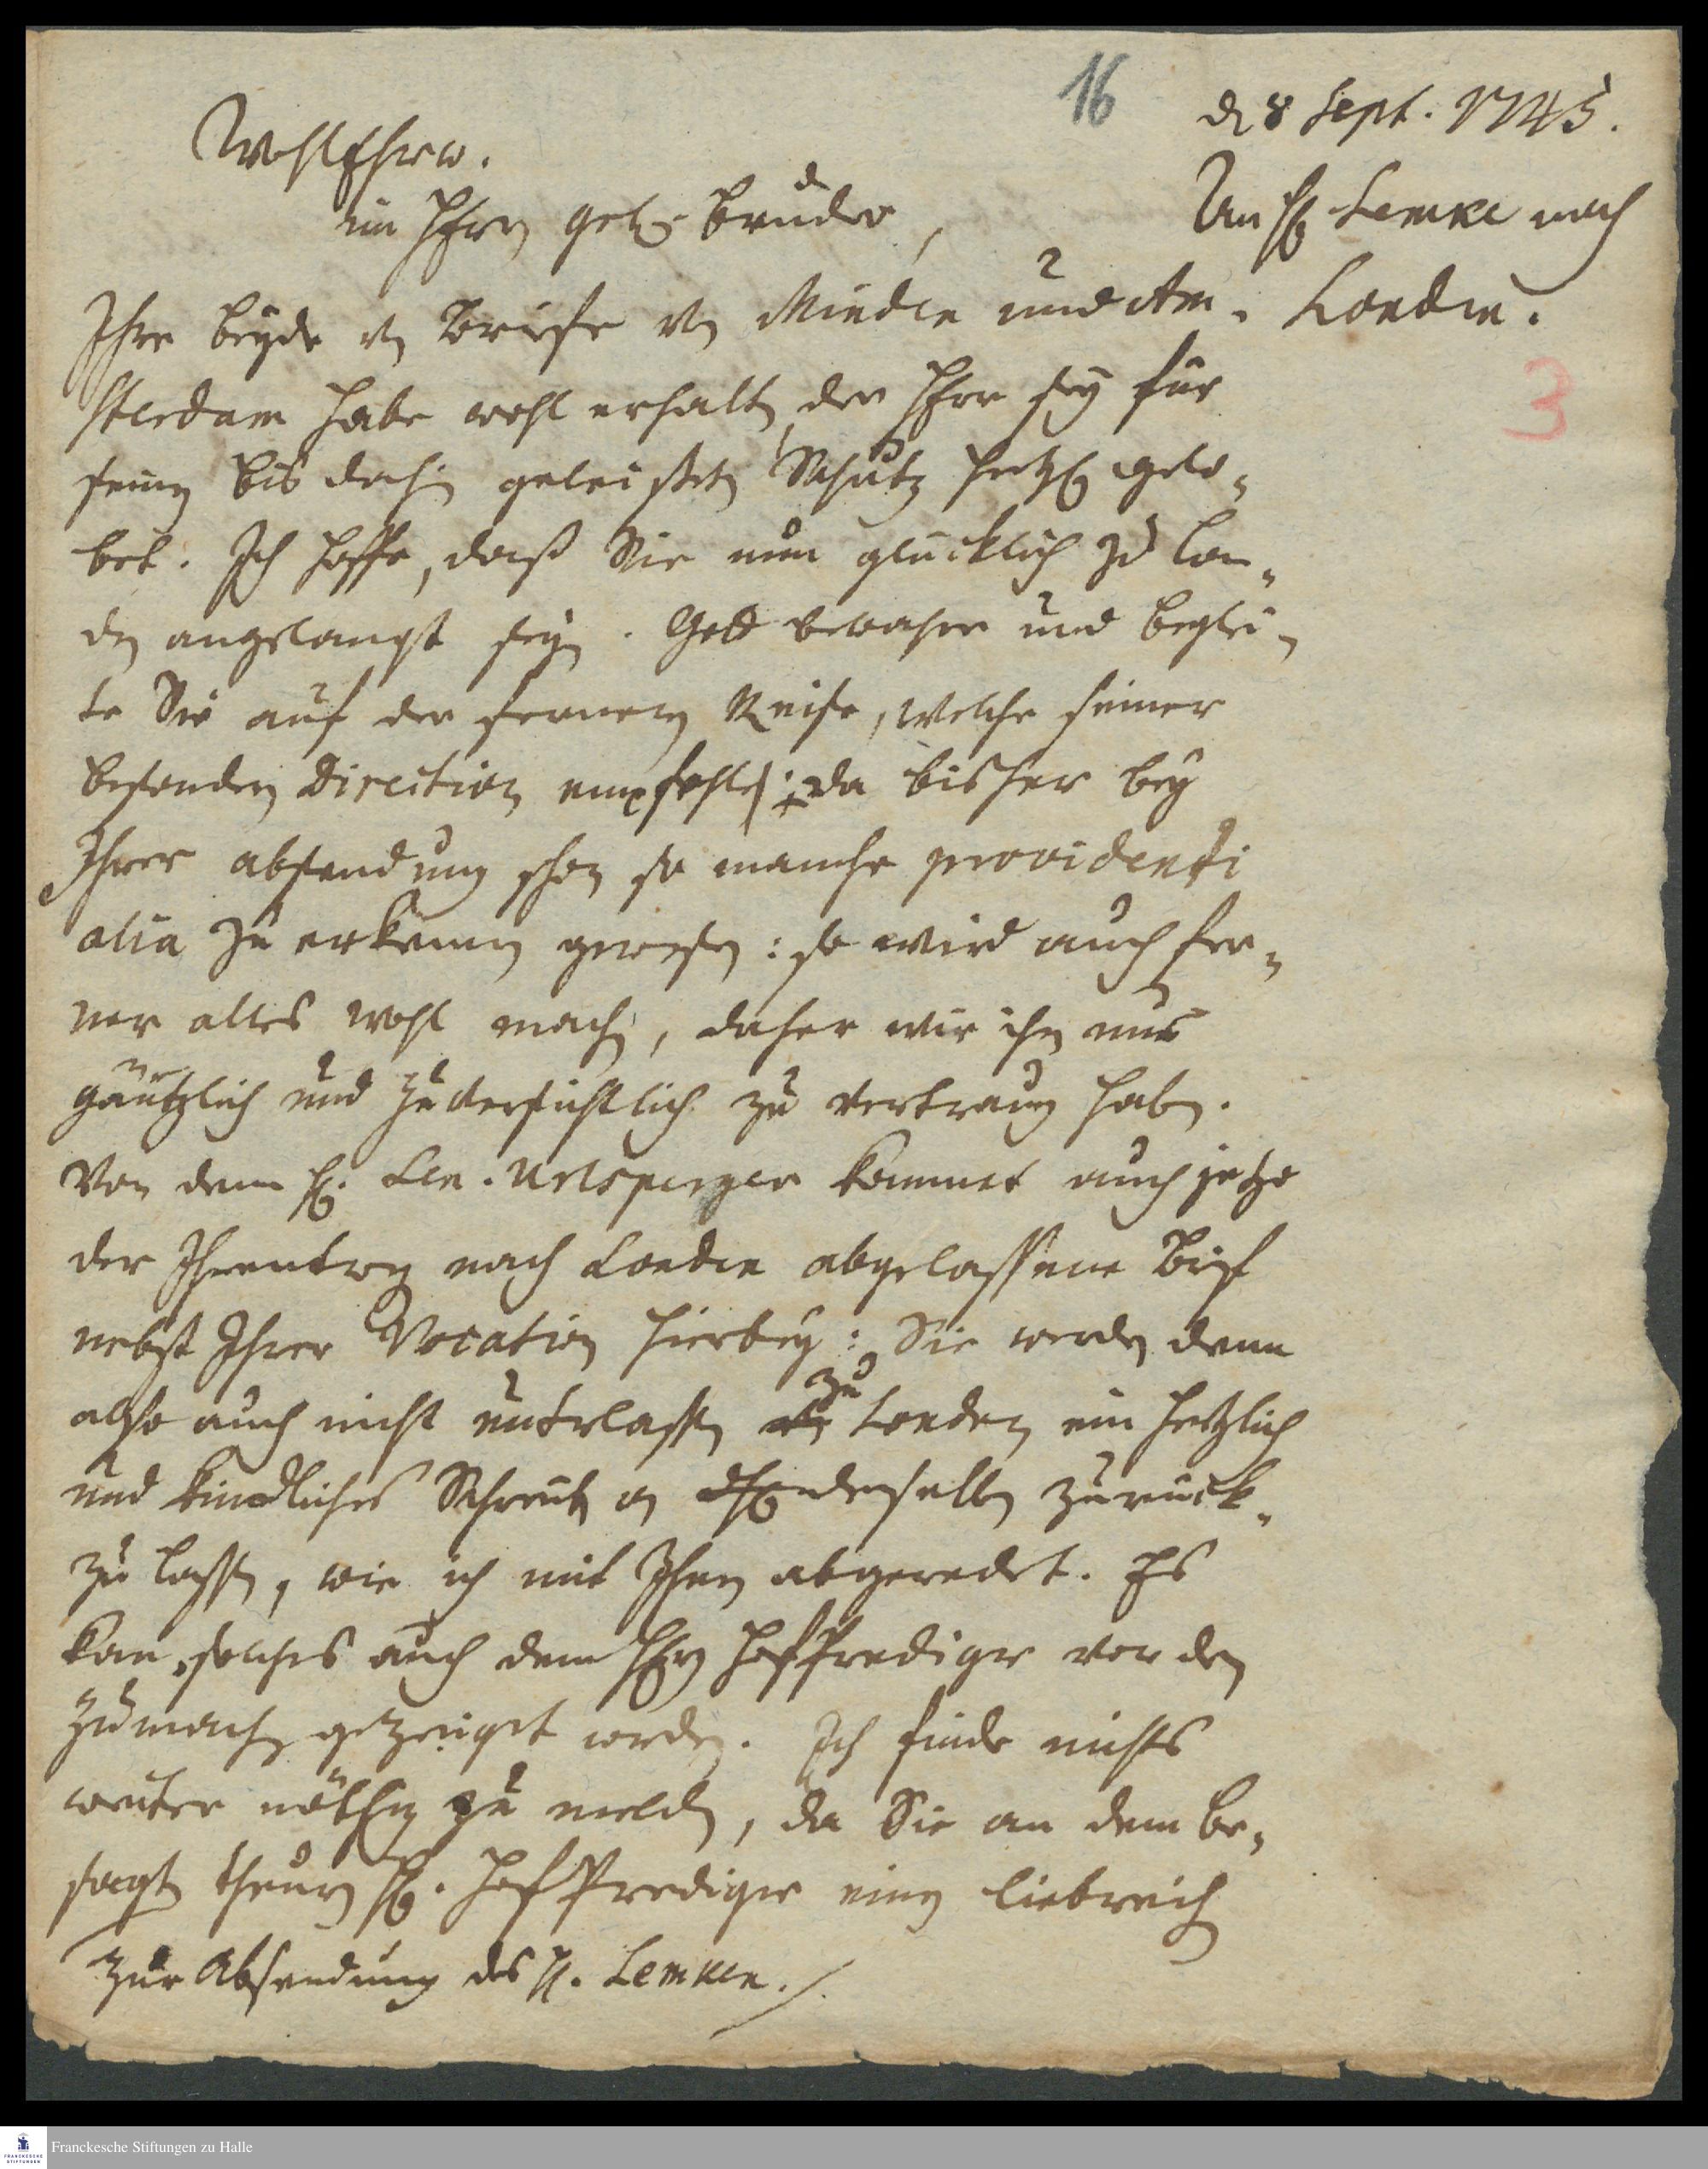 16
d. 8 Sept. 1745.
WohlEhrw.
im Hern gel. Bruder,
An H. Lemke nach
London.
Ihre beyde Briefe von Minden und Am-
sterdam habe wohl erhalten, der Herr sey für
seinen bis dahin geleisteten Schutz hertzl. gelo-
bet. Ich hoffe, daß Sie nun glücklich zu Lon-
den angelangt seyn. Gott bewahre und beglei-
te Sie auf der fernern Reise, welche seiner
besondern Direction empfehle; da bisher bey
Ihrer absendung schon so manche providenti
alia zu erkennen gewesen: so wird auch fer-
ner alles wohl machen, daher wir ihm nur
gäntzlich und zuversichtlich zu vertrauen haben.
Von dem H. Sen. Urlsperger kommet auch jetzo
der Ihrentwegen nach London abgelassene Brief
nebst Ihrer Vocation hierbey: Sie werden denn
also auch nicht unterlassen zu London ein hertzlich
und kindliches Schreiben an denselben zurück-
zu lassen, wie ich mit Ihnen abgeredet. Es
kan solches auch dem Herrn Hoffprediger vor dem
zumachen gezeiget werden. Ich finde nichts
weiter nöthig zu melden, da Sie an dem be-
sagten theuren H. Hoffprediger einen liebreich
zur Absendung des H. Lemken.
3
Franckesche Stiftungen zu Halle
FRANCKESCHE
STIFTUNGEN